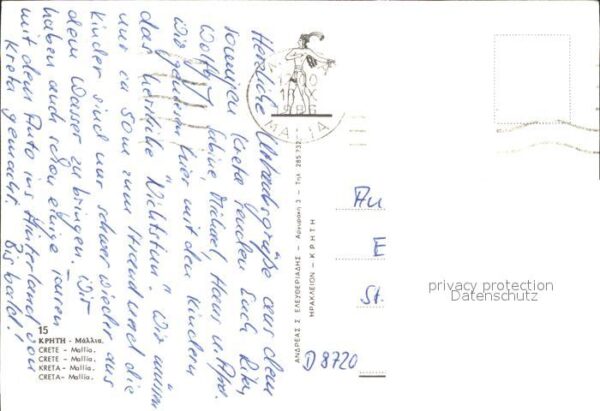 Herzliche Urlaubsgrüße aus dem
sonnigen Kreta senden Euch Rita,
Wolfg., Sabine, Michael, Hans u.
Wir genießen hier mit den Kindern
das herrliche "Nichtstun". Wir müssen
nur ca 50m zum Strand und die
Kinder sind nur schwer wieder aus
dem Wasser zu bringen. Wir
haben auch schon einige Touren
mit dem Auto ins Hinterland von
Kreta gemacht. Bis bald!
15
ΚΡΗΤΗ - Μάλλια.
CRETE - Mallia.
CRETE - Mallia.
KRETA - Mallia.
CRETA - Mallia.
ΑΝΔΡΕΑΣ Σ. ΕΛΕΥΘΕΡΙΑΔΗΣ - Αργυράκη 3 - Τηλ. 285.732
ΗΡΑΚΛΕΙΟΝ - ΚΡΗΤΗ
MALLIA
An
E
St.
D 8720
privacy protection
Datenschutz